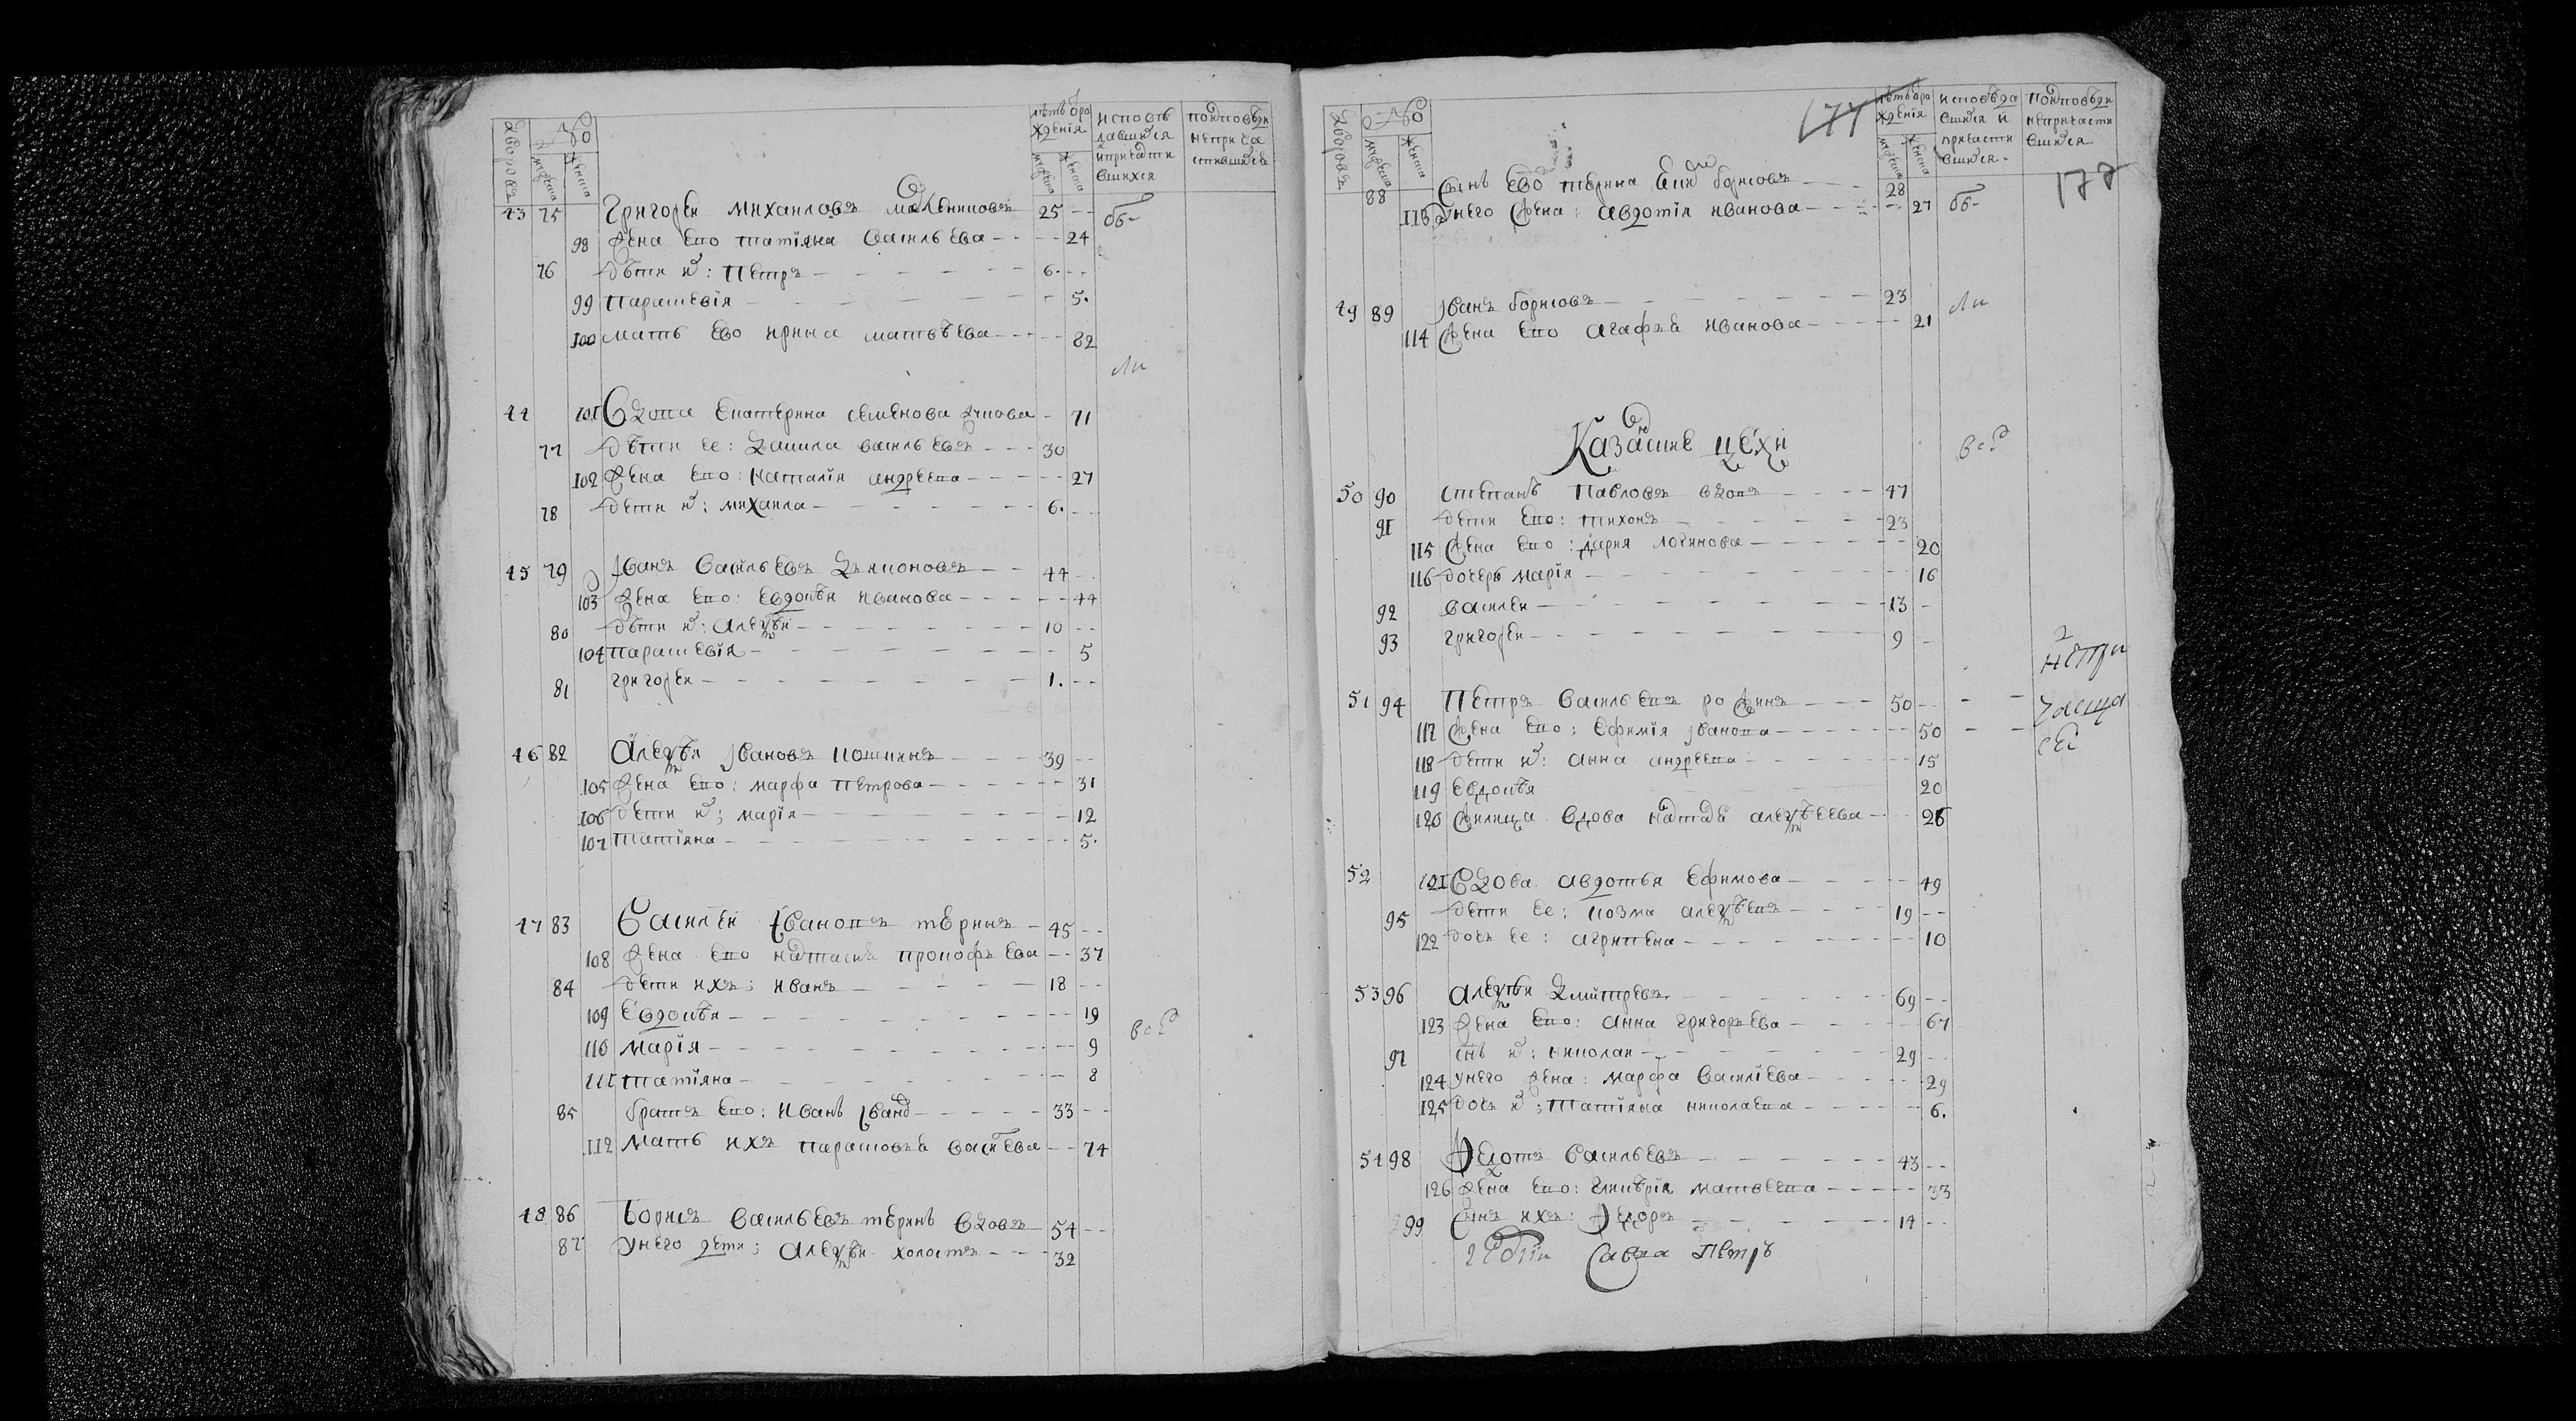 дворовъ № мужска женска лѣтъ ѿ рождения мужска женска исповѣдавшихся и причастившихся по исповѣди не причастившихся
43 75 Григореи михаиловъ масленниковъ 25 бб-
98 жена ево татияна василѣва 24
76 дѣти их: петръ 6
99 парасковия 5
100 мать ево ирина матвѣева 82
ли
44 101 вдова екатерина семенова 71
77 дѣти ее: данила васильевъ 30
102 жена ево: наталия андреева 27
78 дети их: михаила 6
45 79 иванъ васильевъ 44
103 жена ево: евдокѣя иванова 44
80 дѣти их: алеѯѣи 10
104 парасковия 5
81 григореи 1
46 82 алеѯѣи ивановъ кошкинъ 39
105 жена ево: марфа петрова 31
106 дети их: мария 12
107 татияна 5
47 83 василеи ивановъ тюринъ 45
108 жена ево настасия прокофьева 37
84 дети ихъ: иванъ 18
109 евдокѣя 19
110 мария 9 всѣ
111 татияна 8
85 братъ ево: иванъ ивановъ 33
112 мать ихъ парасковья васильева 74
48 86 борисъ васильевъ тюринъ вдовъ 54
87 у него дети: алеѯѣи холостъ 32
177
дворовъ № мужска женска лѣтъ ѿ рождения мужска женска исповѣдавшихся и причастившихся по исповѣди не причастившихся
178
88 сынъ ево борисовъ 28
113 у него жена: авдотия иванова 27 бб-
49 89 иванъ борисовъ 23 ли
114 жена ево агафья иванова 21
Казанские цехи
всѣ
50 90 степанъ павловъ вдовъ 47
91 дети ево: тихонъ 23
115 жена ево: дарья логинова 20
116 дочерь мария 16
92 василеи 13
93 григореи 9
2 непри
51 94 петръ васильевъ рожинъ 50 часща
117 жена ево: ефимия иванова 50 сеѣ
118 дети их: анна андреева 15
119 евдокѣя 20
120 жилица вдова настасья алеѯѣева 26
52 121 вдова авдотья ефимова 49
95 дети ее: козма алеѯѣевъ 19
122 дочь ее: агрипена 10
53 96 алеѯѣи дмитревъ 69
123 жена ево: анна григорьева 67
97 снъ их: николаи 29
124 у него жена: марфа василиева 29
125 дочь их: татияна николаева 6
54 98 федотъ васильевъ 43
126 жена ево: гликѣрия матвеева 33
99 сынъ ихъ: федоръ 14
савва петръ